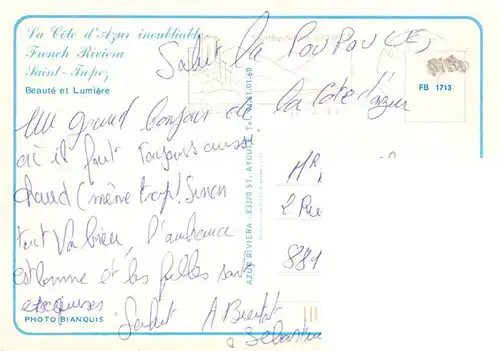 La Côte d'Azur inoubliable
French Riviera
Saint-Tropez
Beauté et Lumière
FB 1713
Salut la POUPOU(E),
Un grand bonjour de la Côte d'azur
où il fait toujours aussi
chaud (même trop! Sinon
tout va bien, l'ambiance
est bonne et les filles sont
exquises.
Salut A Bientôt
Sébastien
Mr
2 Rue
881
AZUR RIVIERA - 83370 ST. AYGULF - Tel. 94.81.01.60
PHOTO BIANQUIS